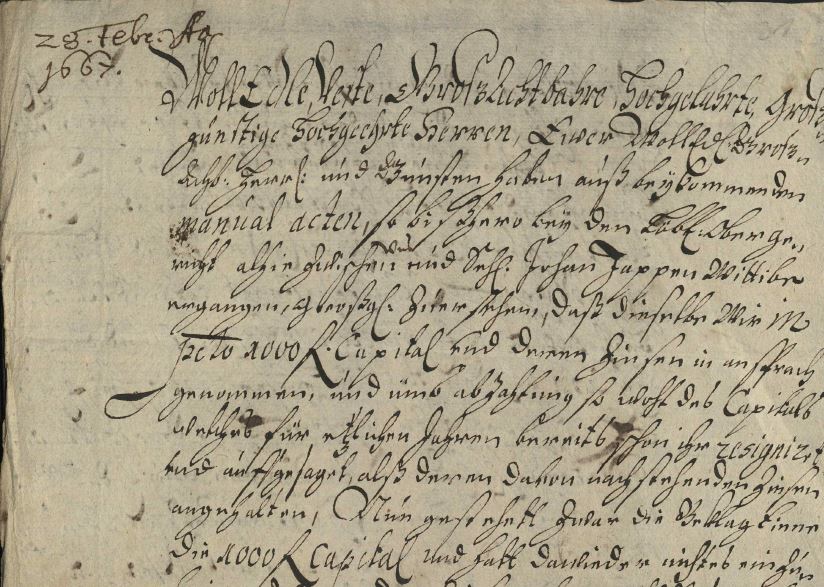 28. Febr. Aō
1667.
WollEdle, Veste, Großachtbahre, Hochgelahrte, Groß
günstige Hochgeehrte Herren, Ewer WollEdl: Großn
Achb: Herrl: und Gunsten haben auß beykommenden
manual acten, so bißhero bey den Löbl: Oberge„
richt alhie zwischen uns und Sehl: Johan Jappen Wittibe
ergangen, Großgl: zu ersehen, daß dieselbe Wir in
pcto 1000 f. Capital und deren Zinsen in ansprach
genommen, und umb abzahlung so wohl des Capitals
welches für etzlichen Jahren bereits schon ihr resigniret
und aufgesaget, alß deren davon nachstehenden Zinsen
angehalten, Nun gestehett zwar die Beklagtinne
die 1000 f Capital und hatt dawieder nichtes einzu